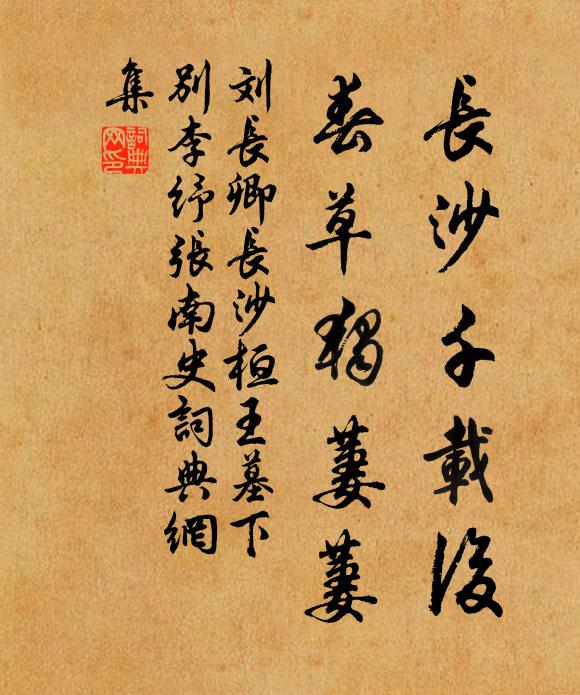 長沙千載後
春草獨萋萋
刘長卿長沙桓王墓下
別李紓張南史詞典網
集
詞典網印